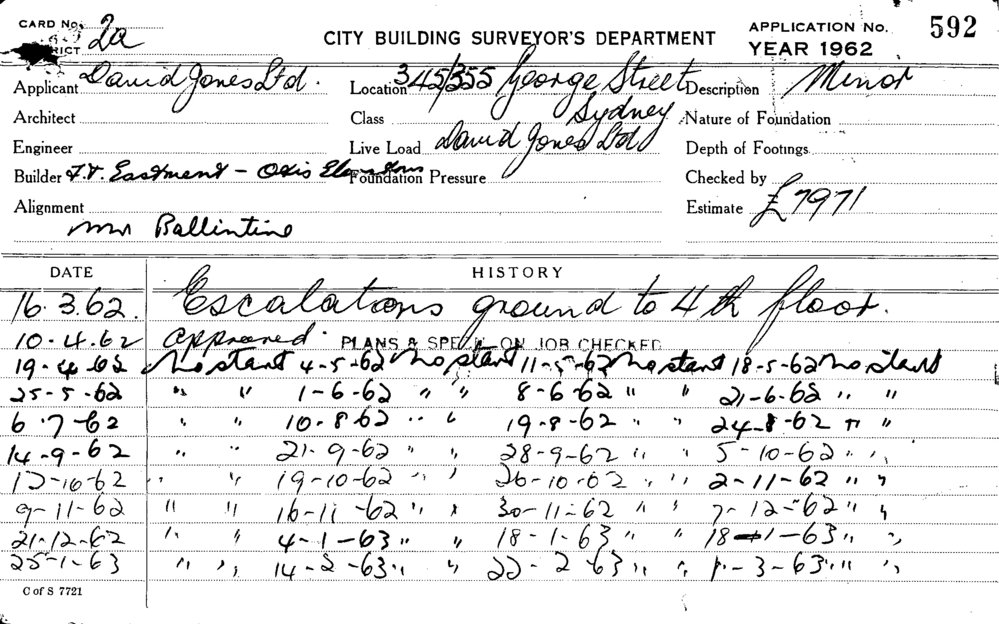 CARD No. 2a
CITY BUILDING SURVEYOR'S DEPARTMENT
APPLICATION No. 592
YEAR 1962
Applicant David Jones Ltd.
Location 345/355 George Street
Description Minor
Architect
Class Sydney
Nature of Foundation
Engineer
Live Load David Jones Ltd
Depth of Footings
Builder F.T. Eastment - Otis Elevators
Foundation Pressure
Checked by
Alignment
Estimate £7971
Mr Ballintine
DATE HISTORY
16.3.62. Escalators ground to 4th floor.
10-4-62 approved. PLANS & SPEC. ON JOB CHECKED
19-4-62 No start 4-5-62 No start 11-5-62 No start 18-5-62 No start
25-5-62 " " 1-6-62 " " 8-6-62 " " 21-6-62 " "
6-7-62 " " 10-8-62 " " 19-8-62 " " 24-8-62 " "
14-9-62 " " 21-9-62 " " 28-9-62 " " 5-10-62 " "
12-10-62 " " 19-10-62 " " 26-10-62 " " 2-11-62 " "
9-11-62 " " 16-11-62 " " 30-11-62 " " 7-12-62 " "
21-12-62 " " 4-1-63 " " 18-1-63 " " 18-1-63 " "
25-1-63 " " 14-2-63 " " 22-2-63 " " 1-3-63 " "
C of S 7721